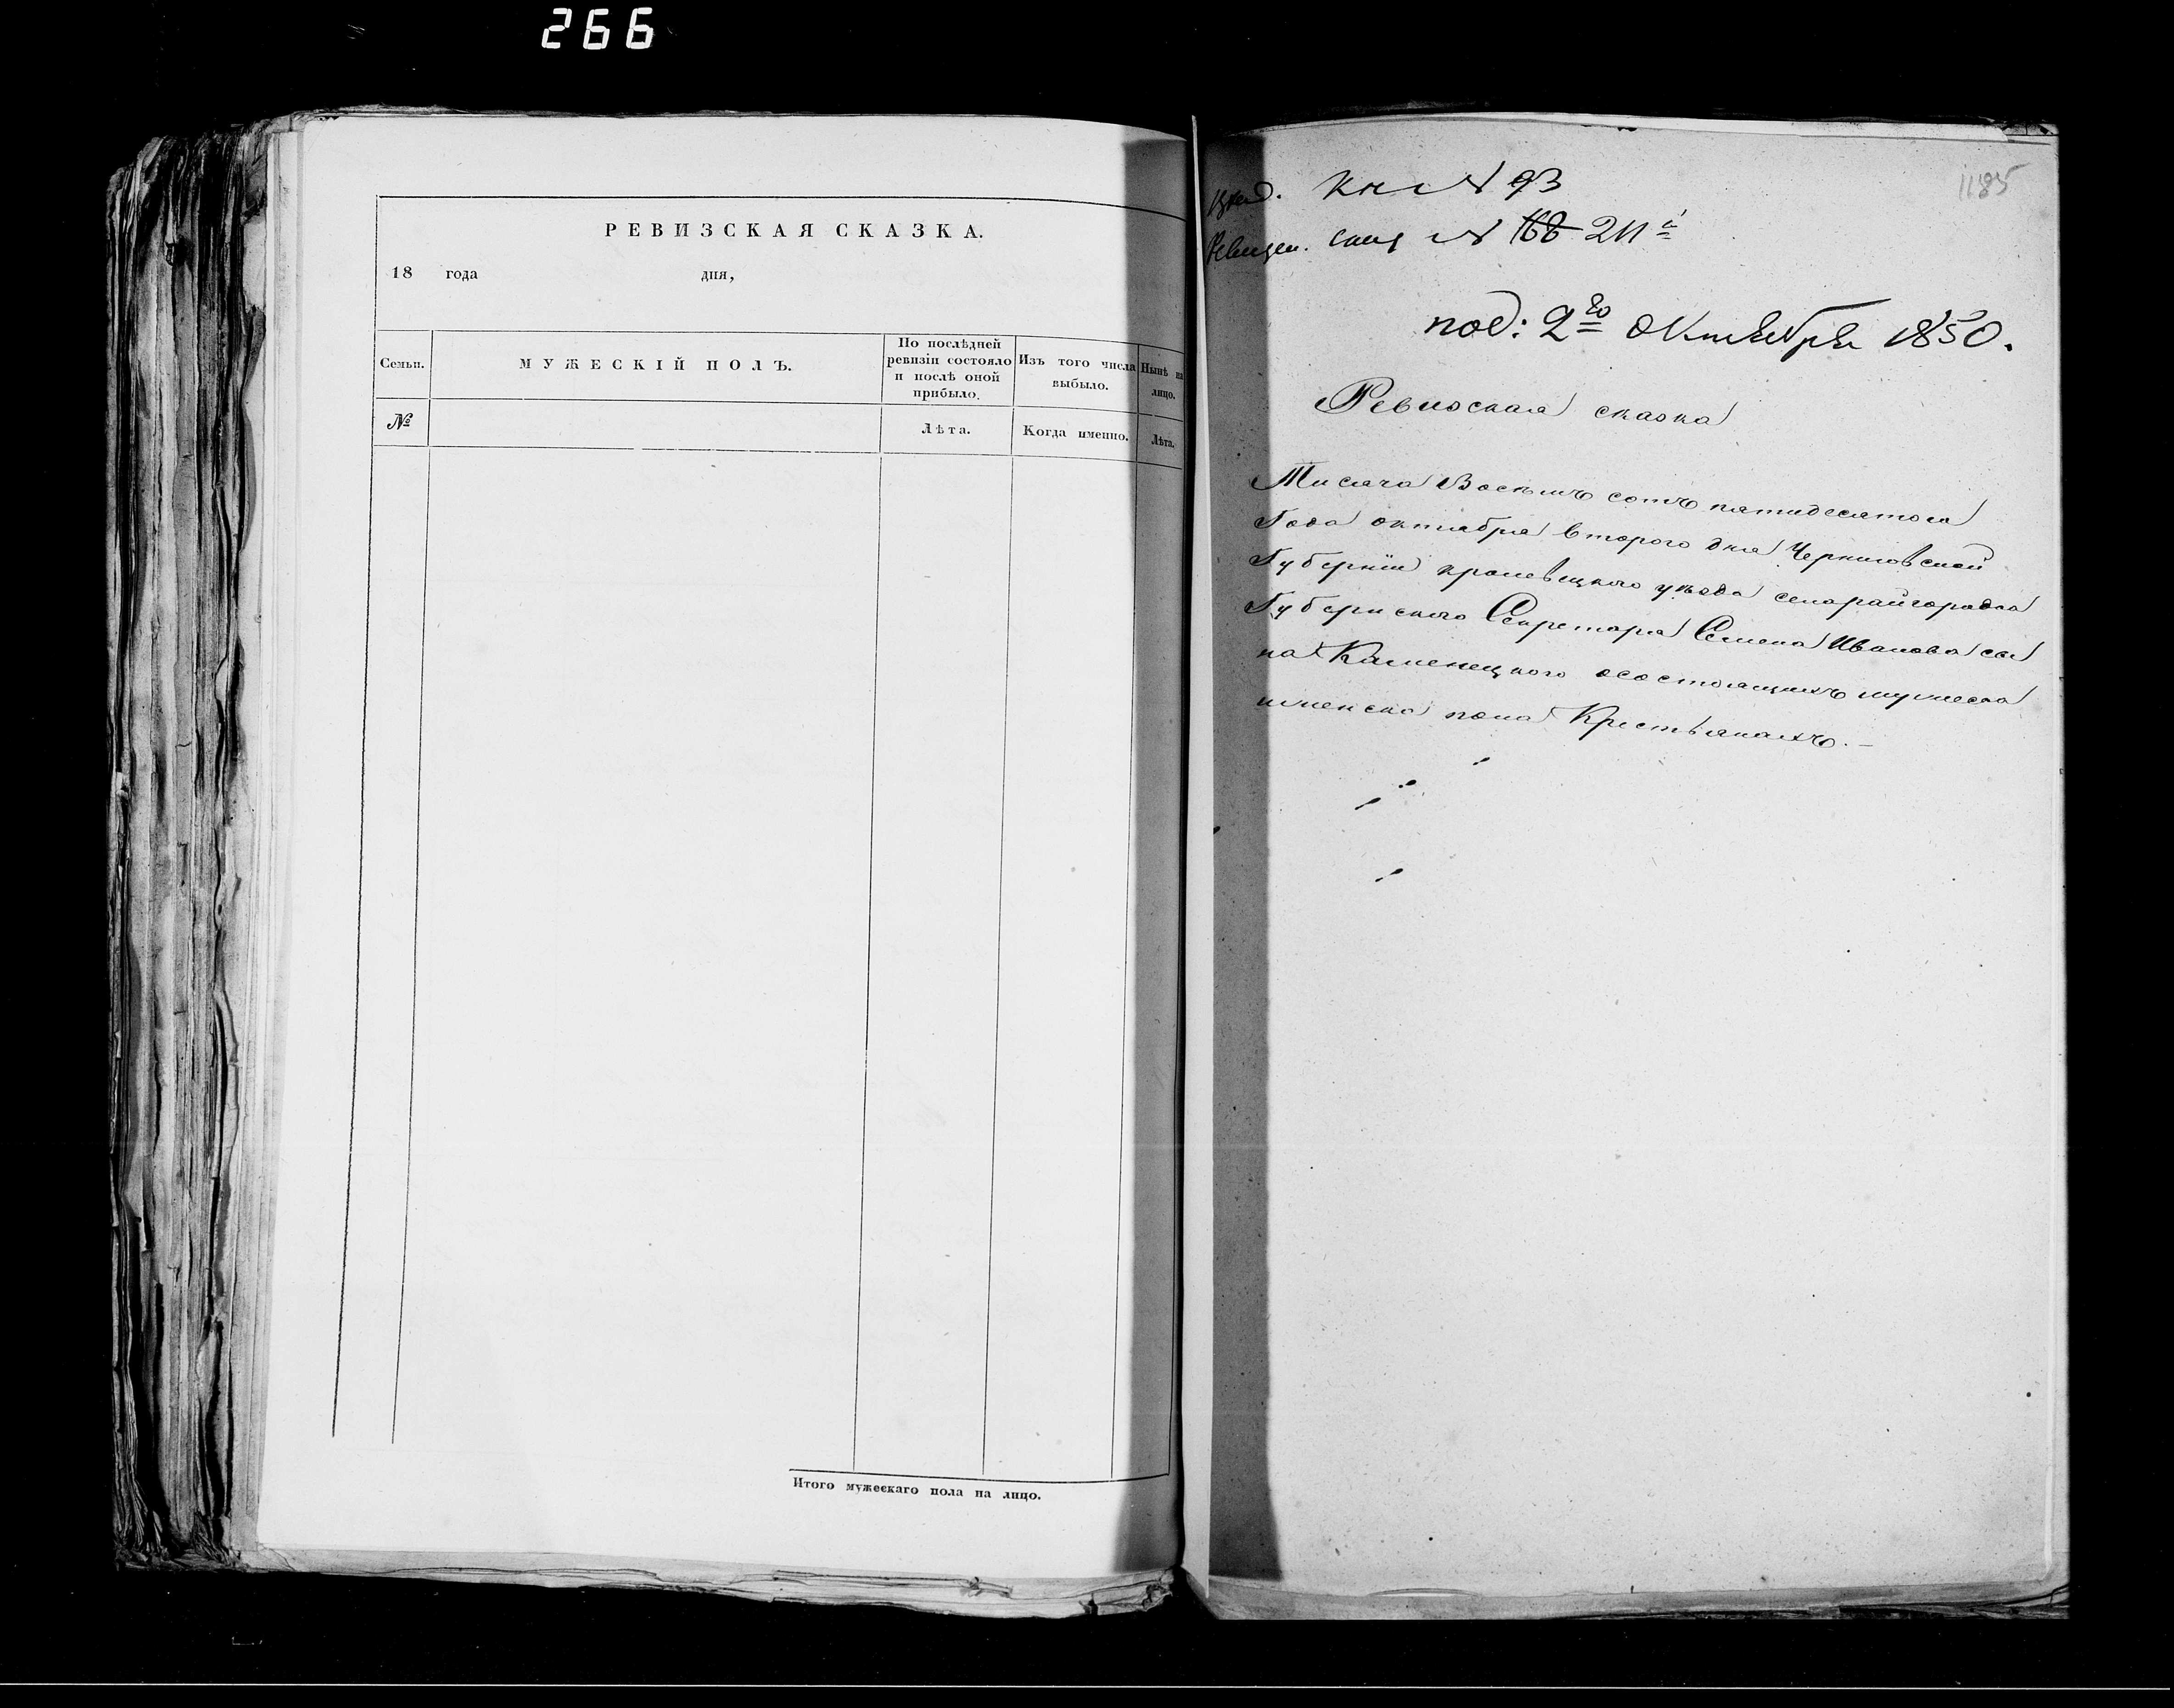 266
РЕВИЗСКАЯ СКАЗКА.
18 года дня,
Семьи.
МУЖЕСКІЙ ПОЛЪ.
По послѣдней ревизіи состояло и послѣ оной прибыло.
Изъ того числа выбыло.
Нынѣ на лицо.
№
Лѣта.
Когда именно.
Лѣта.
Итого мужескаго пола на лицо.
1185
кн № 93
№ 168 211
под: 2го Октября 1850.
Ревизская сказка
Тисяча Восемъ сотъ пятидесятого
Года октября второго дня Черниговской
Губерніи кролевецкого уезда села райгородка
Губернского Секретаря Семена Иванова сы
на Каменецкого осостоящихъ мужеска
иженска пола Крестьянахъ.-